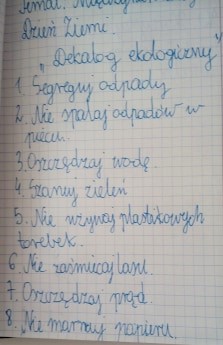 Temat: Międzynarodowy
Dzień Ziemi.
„Dekalog ekologiczny”
1. Segreguj odpady
2. Nie spalaj odpadów w
piecu.
3. Oszczędzaj wodę.
4. Szanuj zieleń
5. Nie używaj plastikowych
torebek.
6. Nie zaśmiecaj lasu.
7. Oszczędzaj prąd.
8. Nie marnuj papieru.